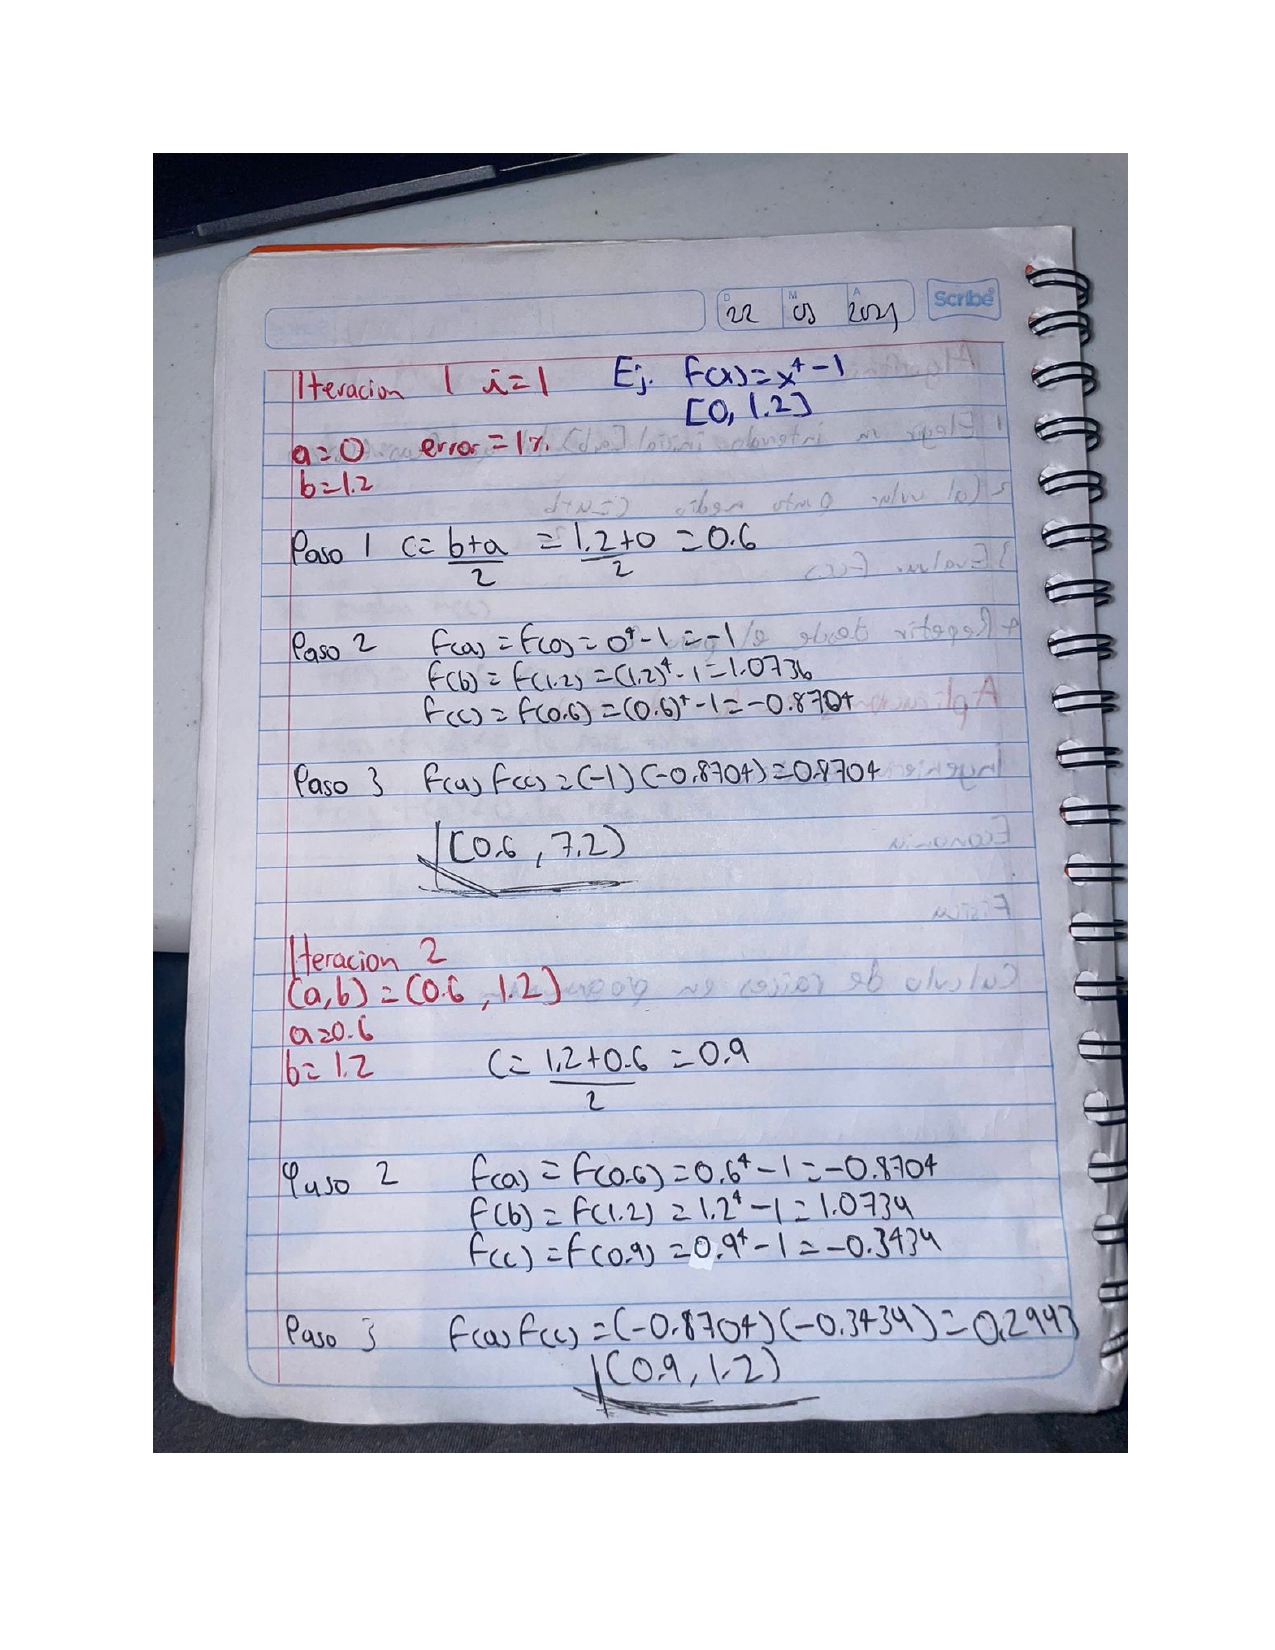 D M A
22 03 2021
Scribe
Iteracion 1 i=1 Ej. F(x)=x⁴-1
[0, 1.2]
a=0 error=1%
b=1.2
Paso 1 C= b+a/2 = 1.2+0/2 =0.6
Paso 2 F(a)=F(0)=0⁴-1=-1
F(b)=F(1.2)=(1.2)⁴-1=1.0736
F(c)=F(0.6)=(0.6)⁴-1=-0.8704
Paso 3 F(a)F(c)=(-1)(-0.8704)=0.8704
[0.6, 7.2)
Iteracion 2
(a,b)=(0.6, 1.2]
a=0.6
b=1.2 C= 1.2+0.6/2 =0.9
Paso 2 F(a)=F(0.6)=0.6⁴-1=-0.8704
F(b)=F(1.2)=1.2⁴-1=1.0734
F(c)=F(0.9)=0.9⁴-1=-0.3434
Paso 3 F(a)F(c)=(-0.8704)(-0.3434)=0.2993
[0.9, 1.2)